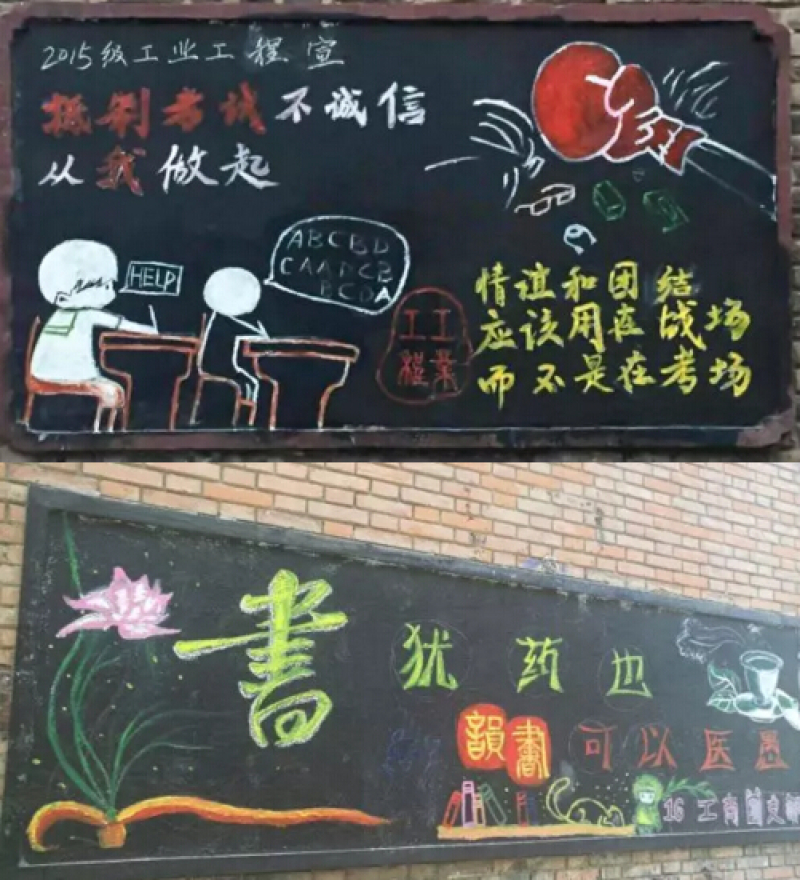 2015级工业工程宣
抵制考试不诚信
从我做起
HELP
ABCBD
CAADCB
BCDA
工業
工程
情谊和团结
应该用在战场
而不是在考场
書犹药也
書可以医愚
16工商